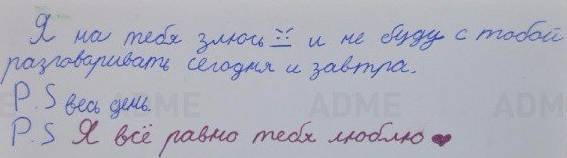 Я на тебя злюсь и не буду с тобой
разговаривать сегодня и завтра.
P.S весь день.
P.S Я всё равно тебя люблю
ADME ADME